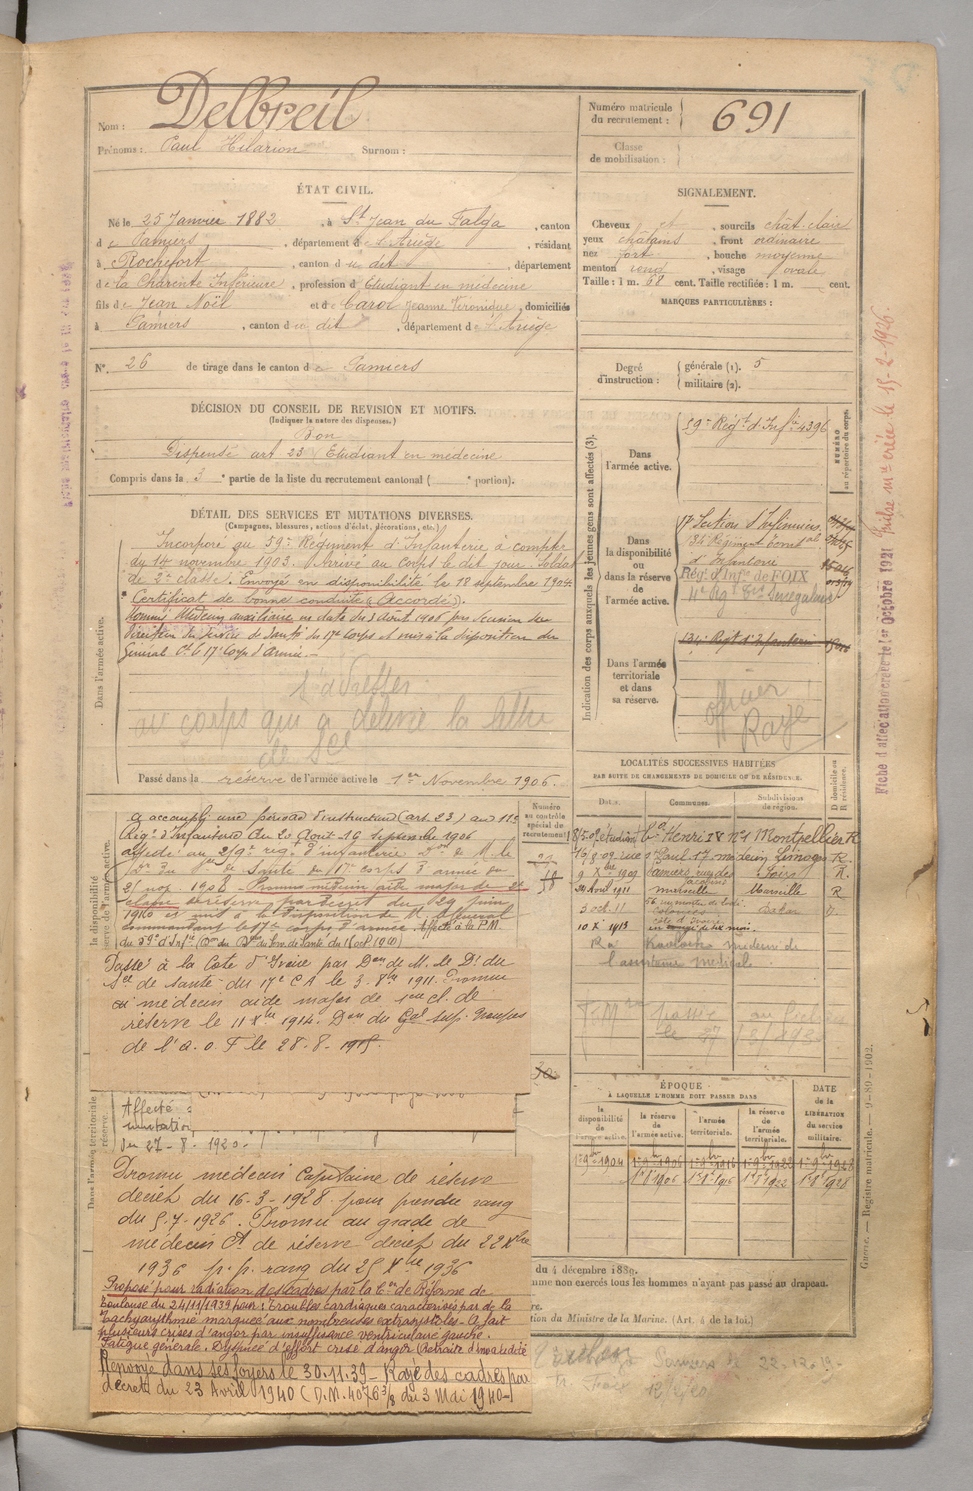 Nom : Delbreil
Prénoms : Paul Hilarion Surnom :
Numéro matricule du recrutement : 691
Classe de mobilisation :
ÉTAT CIVIL.
Né le 25 Janvier 1882, à St Jean du Falga, canton
de Pamiers, département de l'Ariège, résidant
à Rochefort, canton du dit, département
de la Charente Inférieure, profession d'Etudiant en médecine
fils de Jean Noël et de Carol Jeanne Véronique, domiciliés
à Pamiers, canton du dit, département de l'Ariège
N° 26 de tirage dans le canton de Pamiers
SIGNALEMENT.
Cheveux et, sourcils chât. clairs
yeux châtains, front ordinaire
nez fort, bouche moyenne
menton rond, visage ovale
Taille : 1 m. 68 cent. Taille rectifiée : 1 m. cent.
MARQUES PARTICULIÈRES :
Degré d'instruction : générale (1). 5
militaire (2).
DÉCISION DU CONSEIL DE REVISION ET MOTIFS.
(Indiquer la nature des dispenses.)
Bon
Dispensé art 23 Etudiant en médecine
Compris dans la 3e partie de la liste du recrutement cantonal ( e portion).
DÉTAIL DES SERVICES ET MUTATIONS DIVERSES.
(Campagnes, blessures, actions d'éclat, décorations, etc.)
Dans l'armée active.
Incorporé au 59e Régiment d'Infanterie à compter
du 14 novembre 1903. Arrivé au Corps le dit jour. Soldat
de 2e classe. Envoyé en disponibilité le 18 septembre 1904
Certificat de bonne conduite "Accordé".
Nommé Médecin auxiliaire en date du 3 août 1906 par
Direction du Service de Santé du 17e Corps et mis à la disposition du
Général Ct le 17e Corps d'Armée.
au corps qui a délivré la lettre
de Sce
Passé dans la réserve de l'armée active le 1er Novembre 1906.
Indication des corps auxquels les jeunes gens sont affectés (3).
NUMÉRO au répertoire du corps.
Dans l'armée active.
59e Régt d'Infie 4396
Dans la disponibilité ou dans la réserve de l'armée active.
17e Section d'Infirmiers
134e Régiment Territal
d'Infanterie
Régt d'Infie de FOIX
4e Rgt Tirs Sénégalais
Dans l'armée territoriale et dans sa réserve.
134e Regt d'Infanterie
officier
Rayé
Fiche d'affectation créée le 1er Octobre 1921
créée le 15-2-1926.
LOCALITÉS SUCCESSIVES HABITÉES
PAR SUITE DE CHANGEMENTS DE DOMICILE OU DE RÉSIDENCE.
Dates. Communes. Subdivisions de région. D domicile ou R résidence.
Henri IV n° 1 Montpellier R
16/8/09 rue St Paul 17 médecin Limoges R.
9 Xbre 1909 Pamiers rue des Foix R.
24 Août 1911 Marseille Marseille R
3 oct. 11 Dakar
10 X 1913 en congé de six mois.
Kaolack médecin de
l'assistance médicale
Numéro au contrôle spécial du recrutement
a accompli une période d'instruction (art. 23) au 113e
Régt d'Infanterie du 20 Août-16 Septembre 1906
affecté au 259e régt d'infanterie Don de M. le
Dr du Sce de Santé du 17e corps d'armée du
21 nov. 1908 - Promu médecin aide major de 2e
classe de réserve par décret du 29 juin
1910 et mis à la disposition de M. le général
commandant le 17e corps d'armée. Affecté à la P.M.
du 59e d'Infie
Passé à la Cote d'Ivoire par Don de M. le Dr du
Sce de santé du 17e CA le 3-8bre 1911. Promu
médecin aide major de 1ère cl. de
réserve le 11 Xbre 1914. Don du Gal Sup. Troupes
de l'A.O.F le 28-8-1915.
Affecté
du 27-8-1920.
Promu médecin Capitaine de réserve
décret du 16-3-1928 pour prendre rang
du 5-7-1926. Promu au grade de
médecin Ct de réserve décret du 22 Xbre
1936 p. p. rang du 25 Xbre 1936
Proposé pour radiation des Cadres par la Con de Réforme de
Toulouse du 24/11/1939 pour : troubles cardiaques caractérisés par de la
tachyarythmie marquée aux nombreuses extrasystoles - A fait
plusieurs crises d'angor par insuffisance ventriculaire gauche.
Fatigue générale. Dyspnée d'effort crise d'angor
Renvoyé dans ses foyers le 30.11.39 - Rayé des cadres par
décret du 23 Avril 1940 (D.M. 4076 3/8 du 3 Mai 1940-)
ÉPOQUE
À LAQUELLE L'HOMME DOIT PASSER DANS
la disponibilité de l'armée active. la réserve de l'armée active. l'armée territoriale. la réserve de l'armée territoriale.
DATE de la LIBÉRATION du service militaire.
1er 9bre 1904 1er 9bre 1906 1er 9bre 1916 1er 9bre 1922 1er 9bre 1928
du 4 décembre 1889.
mme non exercés tous les hommes n'ayant pas passé au drapeau.
tion du Ministre de la Marine. (Art. 4 de la loi.)
Guerre. — Registre matricule. — 9-89-1902.